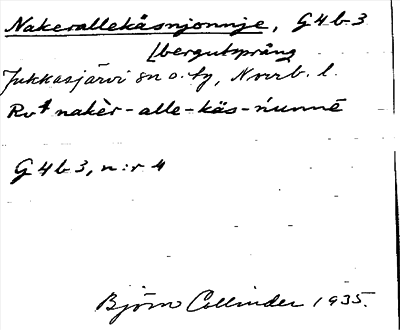 Nakerallekåsnjonnje, G4b3
[bergutsprång
Jukkasjärvi sn o. tg, Norrb. l.
Rvt nakèr-alle-kås-ńunnē
G4b3, n:r 4
Björn Collinder 1935.